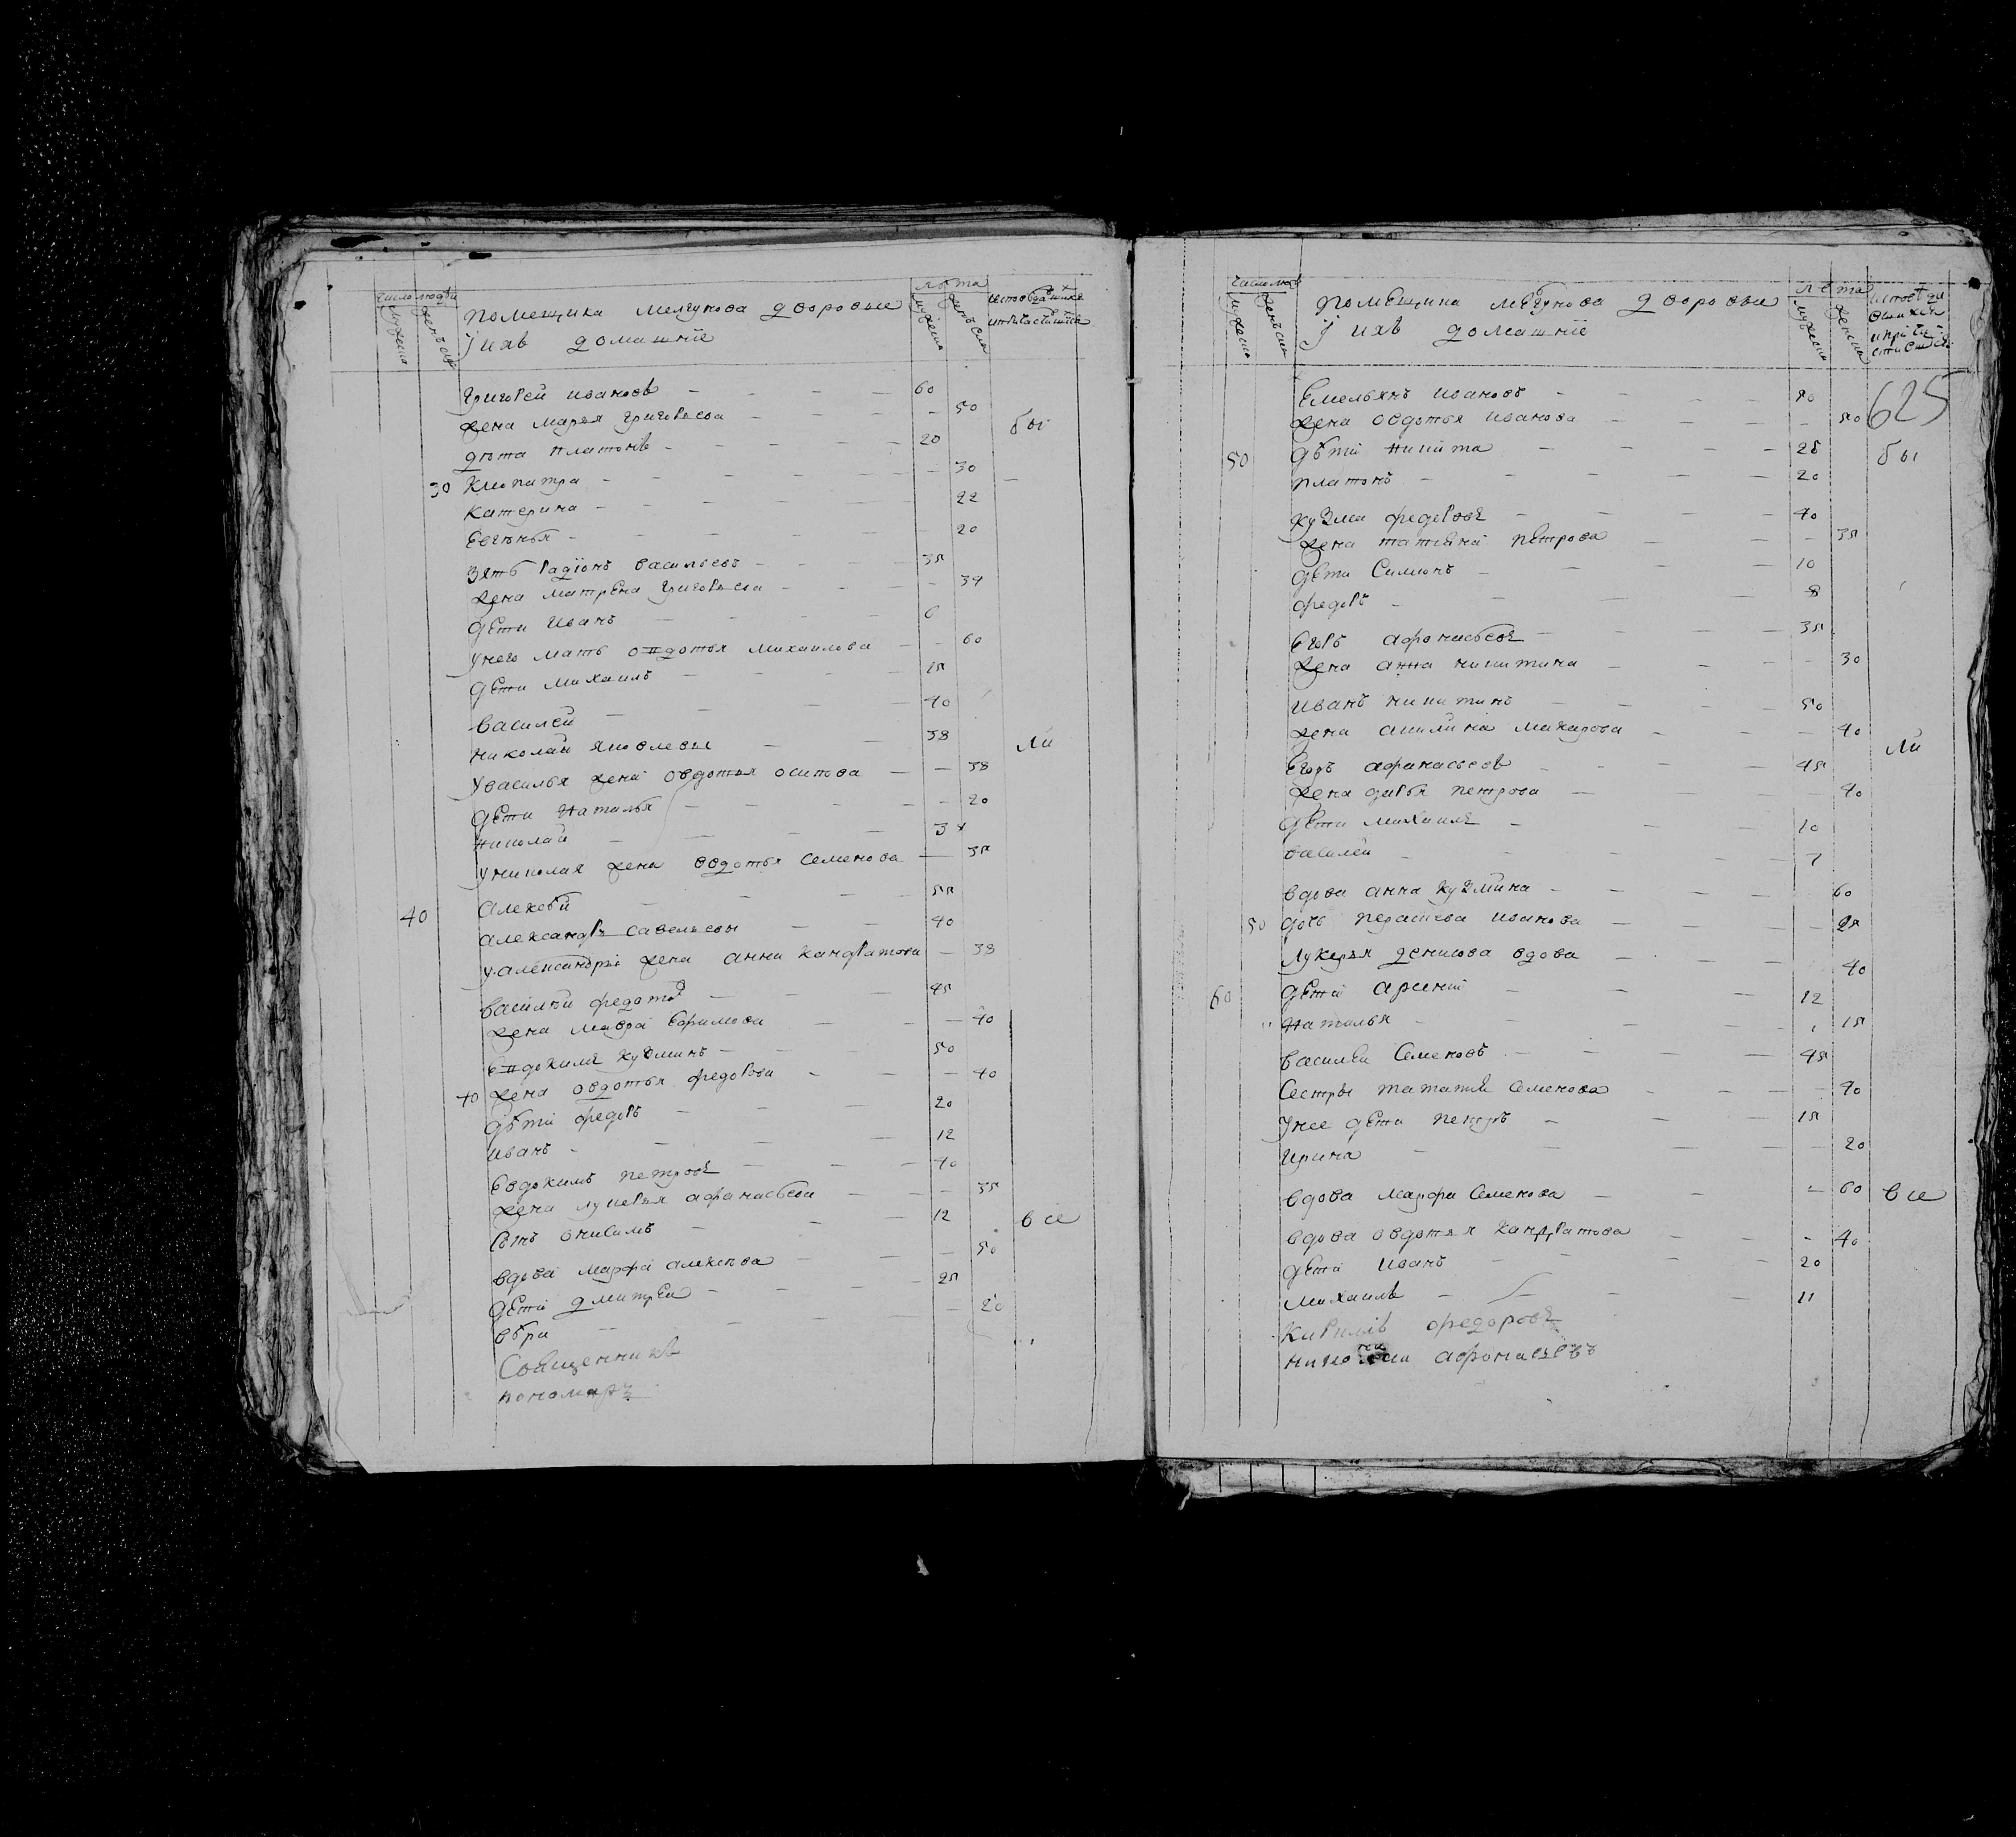 число людеи
мужеска
женска
помещика мелгунова дворовые
і ихъ домашніе
лѣта
мужеска
женска
Григореи ивановъ 60
жена марья григорьева 50
бы
дѣти платонъ 20
30 Клеопатра 30
катерина 22
Евгенья 20
Зять Радіонъ васильевъ 35
жена матрена григорьева 34
дети иванъ 6
у него мать овдотья михаилова 60
дети михаилъ 15
василеи 40
николаи яковлевы 38
ли
у василья жена овдотья осипова 38
дети наталья 20
николаи
у николая жена овдотья семенова 35
40 алексѣй 55
александръ савельевы 40
у александры жена анна кандратова 38
василеи федотов 45
жена мавра ефимова 40
Евдокимъ кузминъ 50
40 жена овдотья федорова 40
дѣти федоръ 20
иванъ 12
Евдокимъ петровъ 40
жена лукерья афанасьева 35
Сынъ анисимъ 12
все
вдова марфа алексѣева 50
дети дмитреи 25
вѣра 20
Священникъ
пономарь
мужеска
женска
помещика мелгунова дворовые
і ихъ домашніе
лѣта
мужеска
женска
625
Емельянъ ивановъ
жена овдотья иванова 50
50 дѣти никита 25
бы
платонъ 20
кузма федоровъ 40
жена татьяна петрова 35
дети Симионъ 10
федоръ 8
Егоръ афонасьевъ 35
жена анна никитина 30
иванъ никитинъ 50
жена акилина макарова 40
ли
Егоръ афанасьевъ 45
жена дарья петрова 40
дети михаилъ 10
василеи 7
вдова анна кузмина 60
50 дочь перасковья иванова 25
лукерья денисова вдова 40
60 дети арсений 12
наталья 15
василеи семеновъ 45
Сестра татьяна семенова 40
у нее дети петръ 15
ирина 20
вдова марфа семенова 60
все
вдова овдотья кандратова 40
дети иванъ 20
михаилъ 11
Кирилъ федоровъ
николаи афонасьевъ